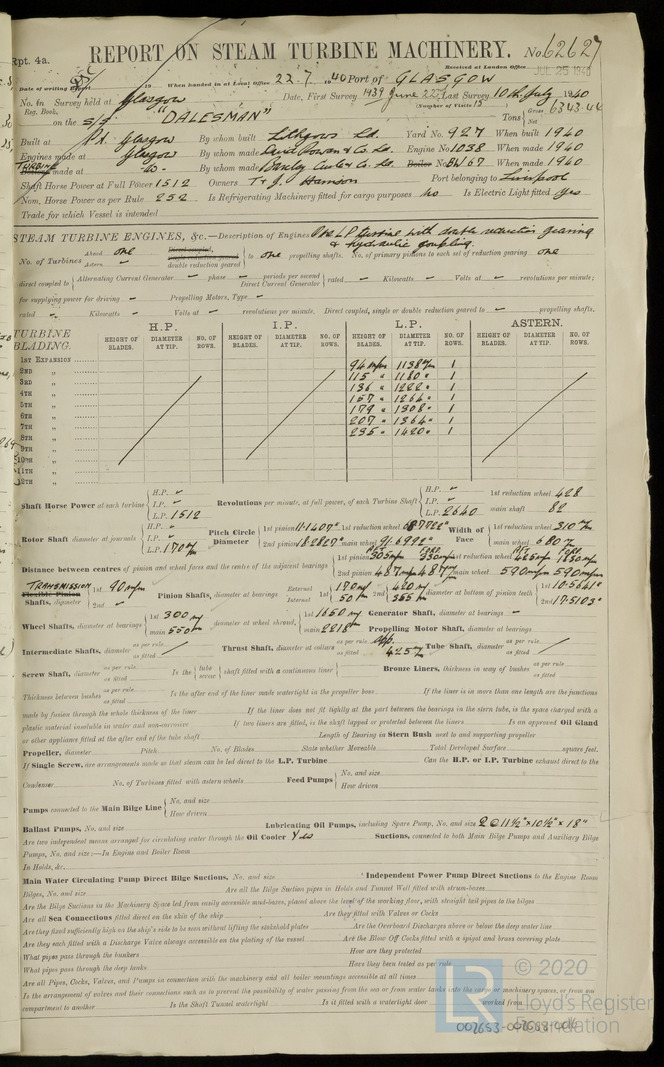 Rpt. 4a.
REPORT ON STEAM TURBINE MACHINERY. No. 62627
Received at London Office JUL 25 1940
Date of writing Report 19 When handed in at Local Office 22.7.1940 Port of GLASGOW
No. in Survey held at Glasgow Date, First Survey 1939 June 22nd Last Survey 10th July 1940
Reg. Book. (Number of Visits 15
on the s/s "DALESMAN" Tons Gross 6343.44 Net
Built at Pt. Glasgow By whom built Lithgows Ld. Yard No. 927 When built 1940
Engines made at Glasgow By whom made David Rowan & Co. Ld. Engine No. 1038 When made 1940
TURBINE made at -do- By whom made Barclay Curle & Co. Ld. Boiler No. BW167 When made 1940
Shaft Horse Power at Full Power 1512 Owners T & J. Harrison Port belonging to Liverpool
Nom. Horse Power as per Rule 252 Is Refrigerating Machinery fitted for cargo purposes No Is Electric Light fitted Yes
Trade for which Vessel is intended
STEAM TURBINE ENGINES, &c.—Description of Engines One LP turbine with double reduction gearing
& hydraulic coupling.
No. of Turbines Ahead one Astern Direct coupled, single reduction geared double reduction geared to one propelling shafts. No. of primary pinions to each set of reduction gearing one
direct coupled to Alternating Current Generator – phase – periods per second Direct Current Generator rated – Kilowatts – Volts at – revolutions per minute;
for supplying power for driving – Propelling Motors, Type –
rated – Kilowatts – Volts at – revolutions per minute. Direct coupled, single or double reduction geared to – propelling shafts.
TURBINE BLADING. H.P. I.P. L.P. ASTERN.
HEIGHT OF BLADES. DIAMETER AT TIP. NO. OF ROWS. HEIGHT OF BLADES. DIAMETER AT TIP. NO. OF ROWS. HEIGHT OF BLADES. DIAMETER AT TIP. NO. OF ROWS. HEIGHT OF BLADES. DIAMETER AT TIP. NO. OF ROWS.
1ST EXPANSION 94 m/m 1138 m/m 1
2ND " 115 " 1180 " 1
3RD " 136 " 1222 " 1
4TH " 157 " 1264 " 1
5TH " 179 " 1308 " 1
6TH " 207 " 1364 " 1
7TH " 235 " 1420 " 1
8TH "
9TH "
10TH "
11TH "
12TH "
Shaft Horse Power at each turbine H.P. – I.P. – L.P. 1512 Revolutions per minute, at full power, of each Turbine Shaft H.P. – I.P. – L.P. 2640 1st reduction wheel 428 main shaft 82
Rotor Shaft diameter at journals H.P. – I.P. – L.P. 170 m/m Pitch Circle Diameter 1st pinion 11.1407" 1st reduction wheel 68.7022" 2nd pinion 18.2807" main wheel 91.6992" Width of Face 1st reduction wheel 310 m/m main wheel 680 m/m
Distance between centres of pinion and wheel faces and the centre of the adjacent bearings 1st pinion AFT 305 m/m FORD. 330 m/m 2nd pinion 487 m/m 487 m/m 1st reduction wheel AFT 465 m/m FORD. 1630 m/m main wheel 590 m/m 590 m/m
TRANSMISSION Flexible Pinion Shafts, diameter 1st 90 m/m 2nd – Pinion Shafts, diameter at bearings External 1st 170 m/m 2nd 420 m/m Internal 50 m/m 355 m/m diameter at bottom of pinion teeth 1st 10.5641" 2nd 17.5103"
Wheel Shafts, diameter at bearings 1st 300 m/m main 550 m/m diameter at wheel shroud, 1st 1650 m/m main 2218 m/m Generator Shaft, diameter at bearings – Propelling Motor Shaft, diameter at bearings
Intermediate Shafts, diameter as per rule as fitted Thrust Shaft, diameter at collars as per rule app. as fitted 425 m/m Tube Shaft, diameter as per rule as fitted
Screw Shaft, diameter as per rule as fitted Is the tube screw shaft fitted with a continuous liner Bronze Liners, thickness in way of bushes as per rule as fitted
Thickness between bushes as per rule as fitted Is the after end of the liner made watertight in the propeller boss If the liner is in more than one length are the junctions
made by fusion through the whole thickness of the liner If the liner does not fit tightly at the part between the bearings in the stern tube, is the space charged with a
plastic material insoluble in water and non-corrosive If two liners are fitted, is the shaft lapped or protected between the liners Is an approved Oil Gland
or other appliance fitted at the after end of the tube shaft Length of Bearing in Stern Bush next to and supporting propeller
Propeller, diameter Pitch No. of Blades State whether Moveable Total Developed Surface square feet.
If Single Screw, are arrangements made so that steam can be led direct to the L.P. Turbine Can the H.P. or I.P. Turbine exhaust direct to the
Condenser No. of Turbines fitted with astern wheels Feed Pumps No. and size How driven
Pumps connected to the Main Bilge Line No. and size How driven
Ballast Pumps, No. and size Lubricating Oil Pumps, including Spare Pump, No. and size 2 @ 11½" x 10½" x 18"
Are two independent means arranged for circulating water through the Oil Cooler Yes Suctions, connected to both Main Bilge Pumps and Auxiliary Bilge
Pumps, No. and size:—In Engine and Boiler Room
In Holds, &c.
Main Water Circulating Pump Direct Bilge Suctions, No. and size Independent Power Pump Direct Suctions to the Engine Room
Bilges, No. and size Are all the Bilge Suction pipes in Holds and Tunnel Well fitted with strum-boxes
Are the Bilge Suctions in the Machinery Space led from easily accessible mud-boxes, placed above the level of the working floor, with straight tail pipes to the bilges
Are all Sea Connections fitted direct on the skin of the ship Are they fitted with Valves or Cocks
Are they fixed sufficiently high on the ship's side to be seen without lifting the stokehold plates Are the Overboard Discharges above or below the deep water line
Are they each fitted with a Discharge Valve always accessible on the plating of the vessel Are the Blow Off Cocks fitted with a spigot and brass covering plate
What pipes pass through the bunkers How are they protected
What pipes pass through the deep tanks Have they been tested as per rule
Are all Pipes, Cocks, Valves, and Pumps in connection with the machinery and all boiler mountings accessible at all times
Is the arrangement of valves and their connections such as to prevent the possibility of water passing from the sea or from water tanks into the cargo or machinery spaces, or from one
compartment to another Is the Shaft Tunnel watertight Is it fitted with a watertight door worked from
LR © 2020
Lloyd's Register
Foundation